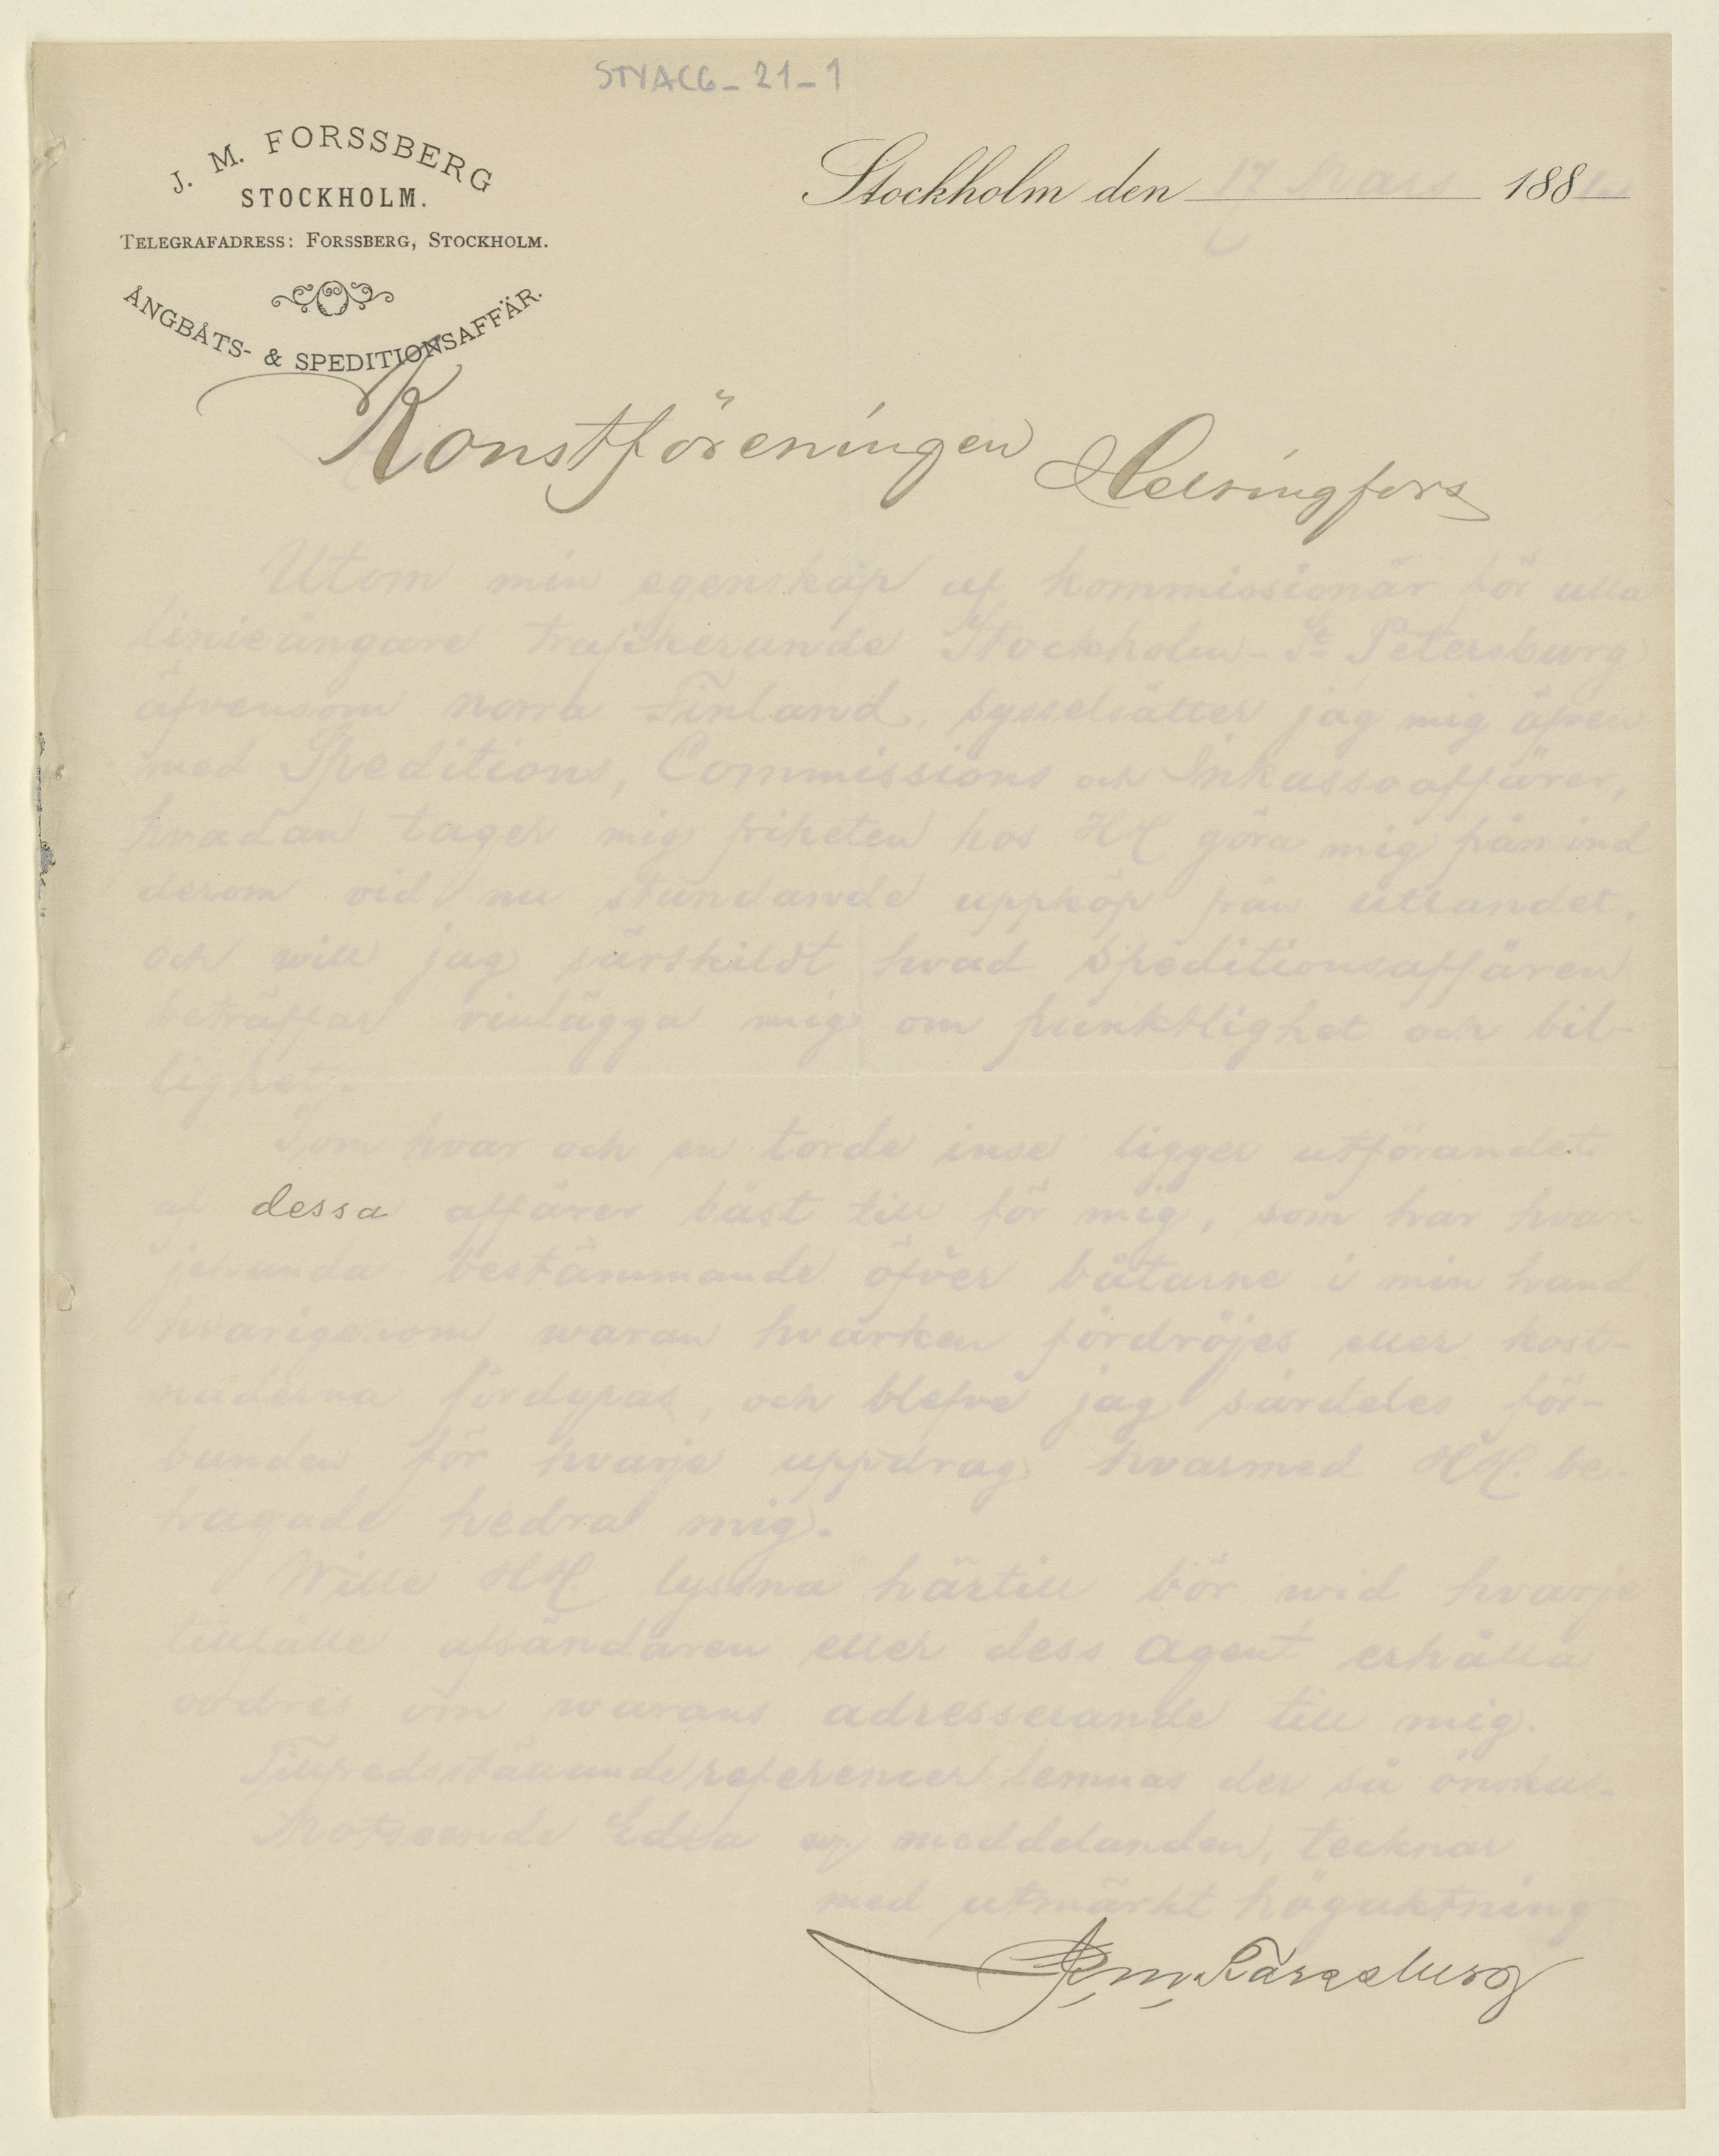 STYACG_21_1
J. M. FORSSBERG
STOCKHOLM.
TELEGRAFADRESS: FORSSBERG, STOCKHOLM.
ÅNGBÅTS- & SPEDITIONSAFFÄR.
Stockholm den 17 Mars 188
Konstföreningen Helsingfors
Utom min egenskap af kommissionär för alla
linieångare trafikerande Stockholm - St Petersburg
äfvensom norra Finland, sysselsätter jag mig äfven
med Speditions, Commissions och Inkassoaffärer,
hvadan tager mig friheten hos HH göra mig påmind
derom vid nu stundande uppköp från utlandet,
och will jag särskildt hvad speditionsaffären
beträffar vinlägga mig om punktlighet och bil-
lighet.
Som hvar och en torde inse ligger utförandet
af dessa affärer bäst till för mig, som har hvar-
jehanda bestämmande öfver båtarne i min hand
hvarigenom waran hvarken fördröjes eller kost-
naderna fördyras, och blefve jag särdeles för-
bunden för hvarje uppdrag hvarmed HH. be-
hagade hedra mig.
Wille HH. lyssna härtill bör wid hvarje
tillfälle afsändaren eller dess agent erhålla
ordres om warans adresserande till mig.
Tillfredsställande referencer lemnas der så önskas.
Motseende Edra meddelanden, tecknar
med utmärkt högaktning
J. M. Forssberg